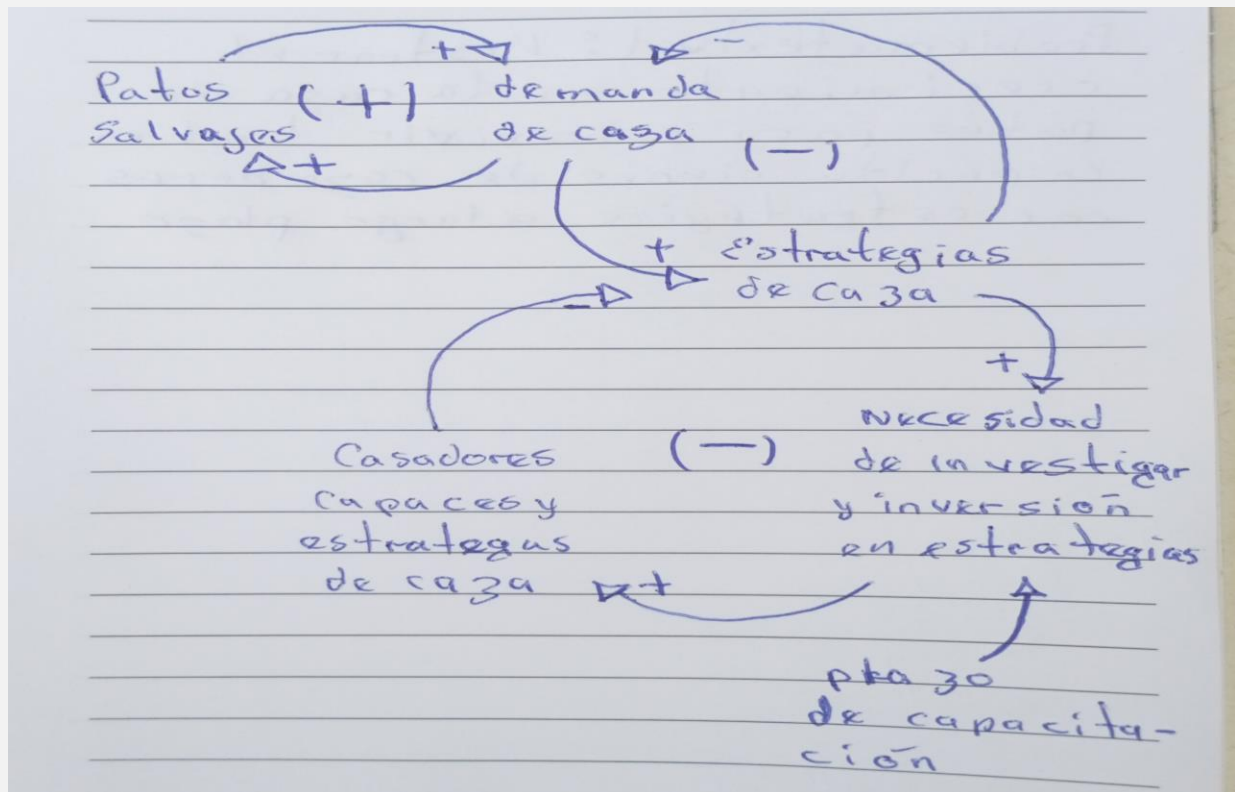 +
-
Patos
Salvages
(+)
demanda
de caza
+
(-)
+
estrategias
de caza
-
+
Casadores
capaces y
estrategas
de caza
(-)
Necesidad
de investigar
y inversión
en estrategias
+
plazo
de capacita-
ción